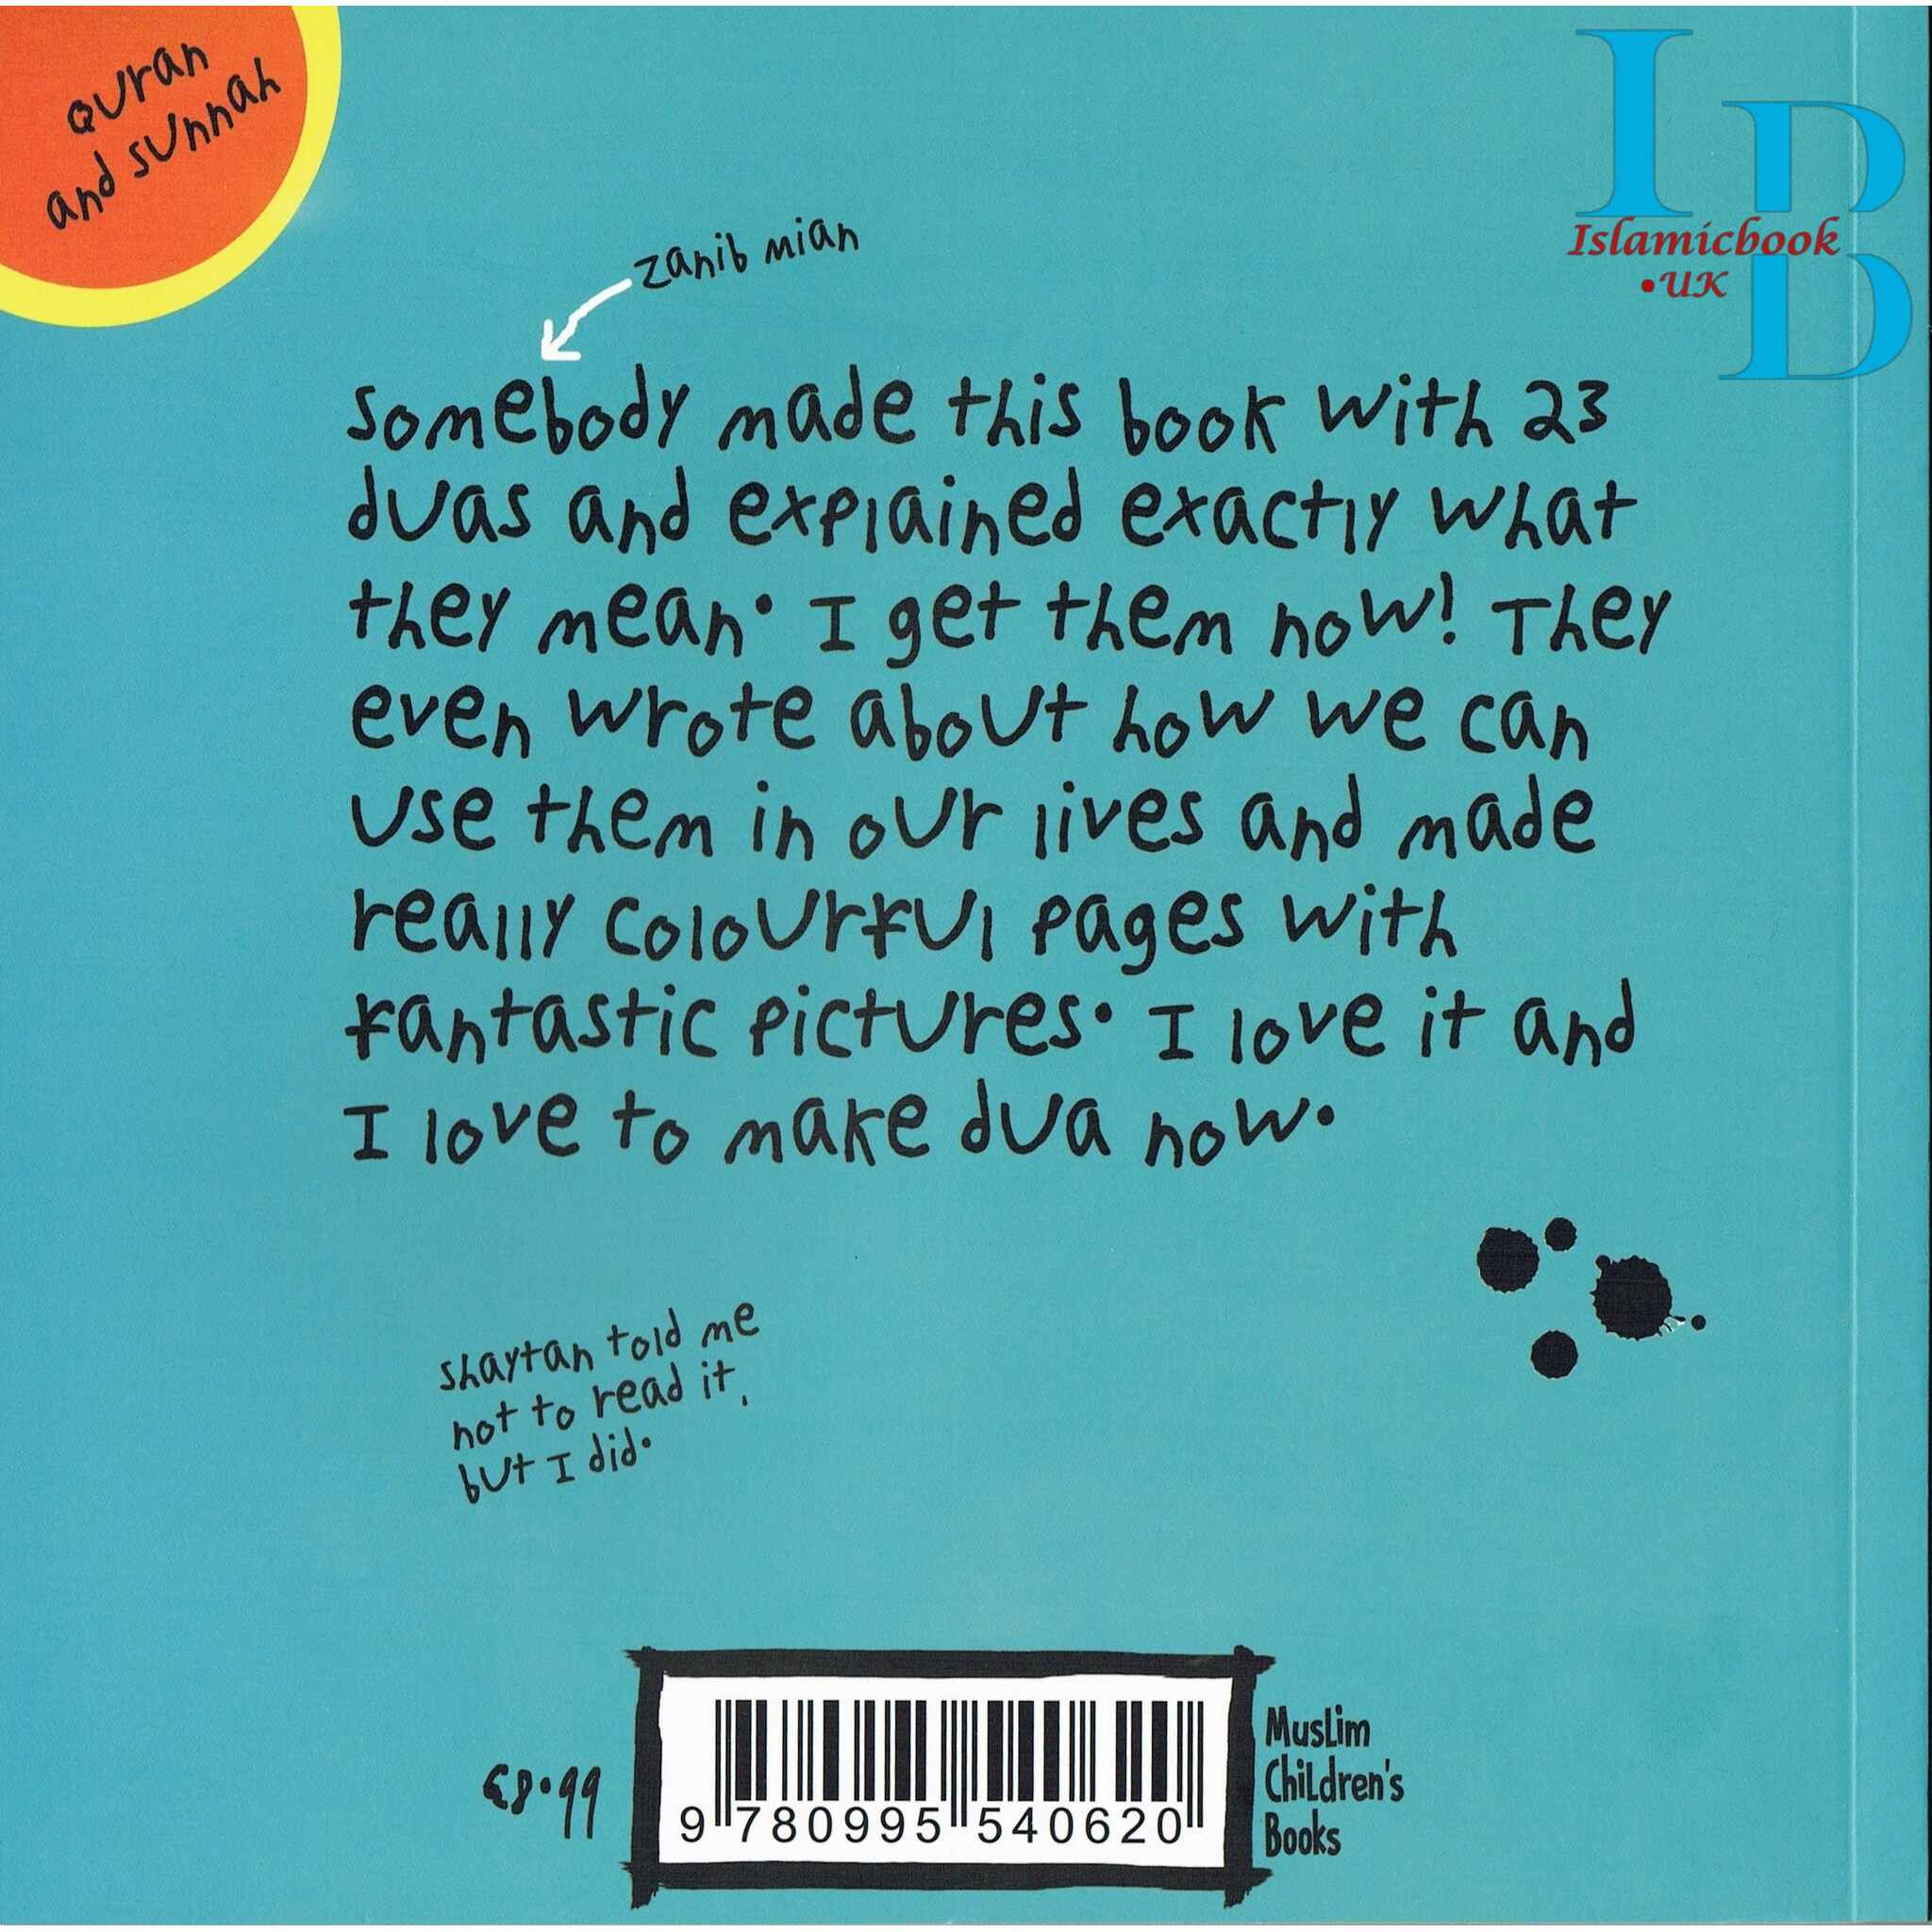 Quran
and sunnah
I
B
D
Islamicbook
•UK
zanib mian
somebody made this book with 23
duas and explained exactly what
they mean. I get them now! They
even wrote about how we can
use them in our lives and made
really colourful pages with
fantastic pictures. I love it and
I love to make dua now.
shaytan told me
not to read it,
but I did.
£8.99
9 780995 540620
Muslim
Children's
Books